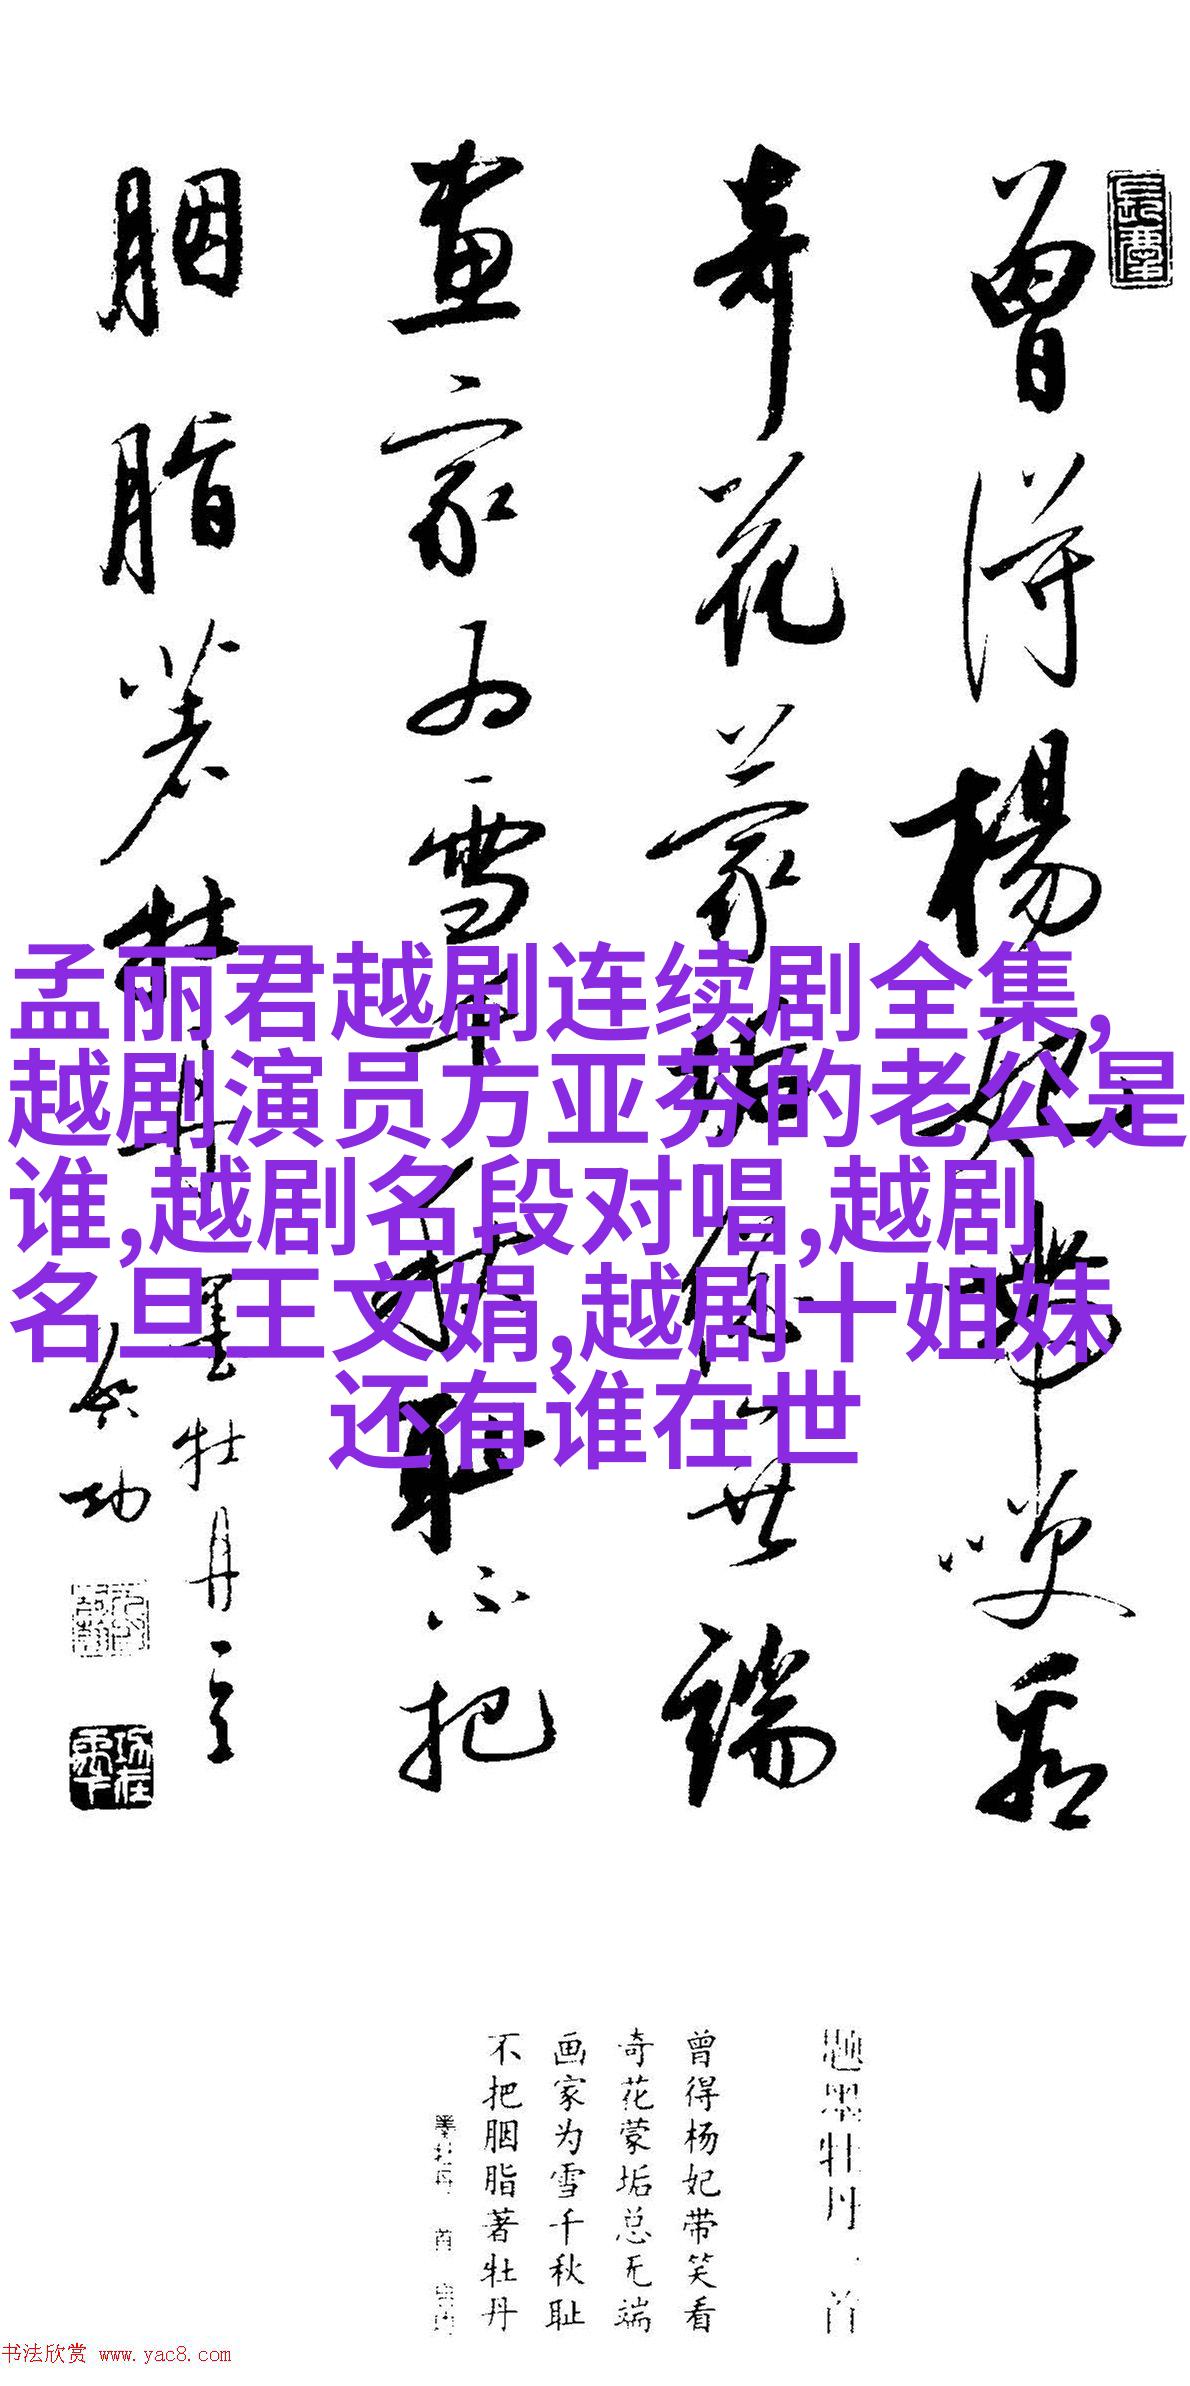 曾得楊妃带笑看
奇花蒙垢總無端
画家为雪千秋耻
不把
胭脂著牡丹
墨牡丹一首
启功
孟丽君越剧连续剧全集,
越剧演员方亚芬的老公是
谁,越剧名段对唱,越剧
名旦王文娟,越剧十姐妹
还有谁在世
题墨牡丹一首
曾得杨妃带笑看
奇花蒙垢总无端
画家为雪千秋耻
不把胭脂著牡丹
墨牡丹 首
书法欣赏 www.yac8.com